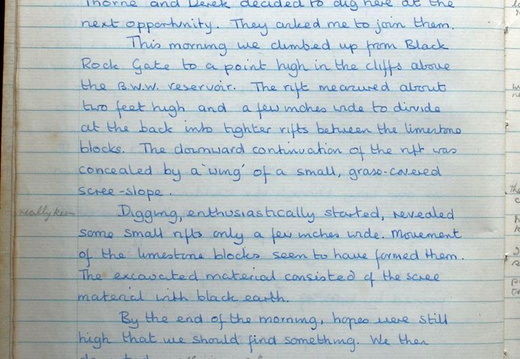 Thorne and Derek decided to dig here at the
next opportunity. They asked me to join them.
This morning we climbed up from Black
Rock Gate to a point high in the cliffs above
the B.W.W. reservoir. The rift measured about
two feet high and a few inches wide to divide
at the back into tighter rifts between the limestone
blocks. The downward continuation of the rift was
concealed by a 'wing' of a small, grass-covered
scree-slope.
Digging, enthusiastically started, revealed
some small rifts only a few inches wide. Movement
of the limestone blocks seem to have formed them.
The excavated material consisted of the scree
material with black earth.
By the end of the morning, hopes were still
high that we should find something. We then